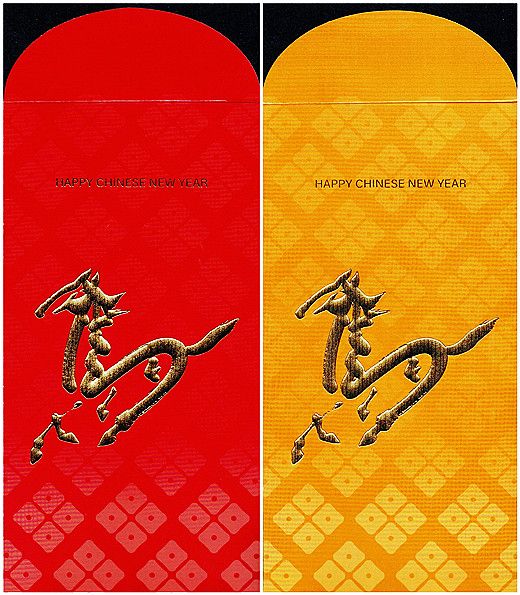 HAPPY CHINESE NEW YEAR
馬
HAPPY CHINESE NEW YEAR
馬